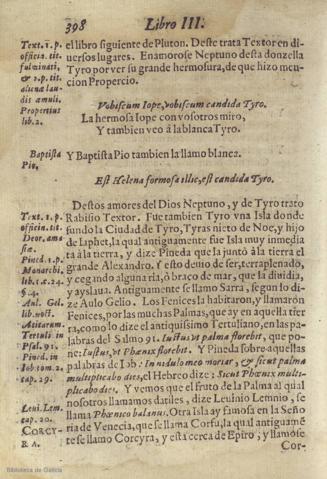 398 Libro III.
Text. 1. p.
officia. tit.
fulminati,
& 2. p. tit.
aliena lau-
dis amuli.
Propertius
lib. 2.
el libro siguiente de Pluton. Deste trata Textor en di-
uersos lugares. Enamorose Neptuno desta donzella
Tyro por ver su grande hermosura, de que hizo men-
cion Propercio.
Vobiscum Iope, vobiscum candida Tyro.
La hermosa Iope con vosotros miro,
Y tambien veo à la blanca Tyro.
Baptista
Pio,
Y Baptista Pio tambien la llamo blanca.
Est Helena formosa illic, est candida Tyro.
Text. 1. p.
officin. tit.
Deor. ama-
siæ.
Pined. 1. p.
Monarchi.
lib. 1. c. 24.
§. 4.
Aul. Gel.
lib. noct.
Aticarum.
Tertuli. in
Psal. 91.
Pined. in
Iob. tom. 2.
cap. 29.
Leui. Lem.
cap. 20.
CORCY-
RA.
Destos amores del Dios Neptuno, y de Tyro trato
Rabisio Textor. Fue tambien Tyro vna Isla donde
fundo la Ciudad de Tyro, Tyras nieto de Noe, y hijo
de Iaphet, la qual antiguamente fue Isla muy inmedia
ta à la tierra, y dize Pineda que la juntò à la tierra el
grande Alexandro. Y esto deuio de ser, terraplenado,
y cegando alguna ria, ò braço de mar, que la diuidia,
y ayslaua. Antiguamente se llamo Sarra, segun lo di-
ze Aulo Gelio. Los Fenices la habitaron, y llamarõn
Fenices, por las muchas Palmas, que ay en aquella tier
ra, como lo dize el antiquissimo Tertuliano, en las pa-
labras del Salmo 91. Iustus vt palma florebit, que po-
ne: Iustus, vt Phœnix florebit. Y Pineda sobre aquellas
palabras de Iob: In nidulo meo moriar, & sicut palma
multiplicabo dies, el Hebreo dize: Sicut Phœnix multi-
plicabo dies. Y vemos que el fruto de la Palma al qual
nosotros llamamos datiles, dize Leuinio Lemnio, se
llama Phœnico balanus. Otra Isla ay famosa en la Seño
ria de Venecia, que se llama Corfu, la qual antiguamẽ
te se llamo Corcyra, y esta cerca de Epiro; y llamòse
Cor-
Biblioteca de Galicia